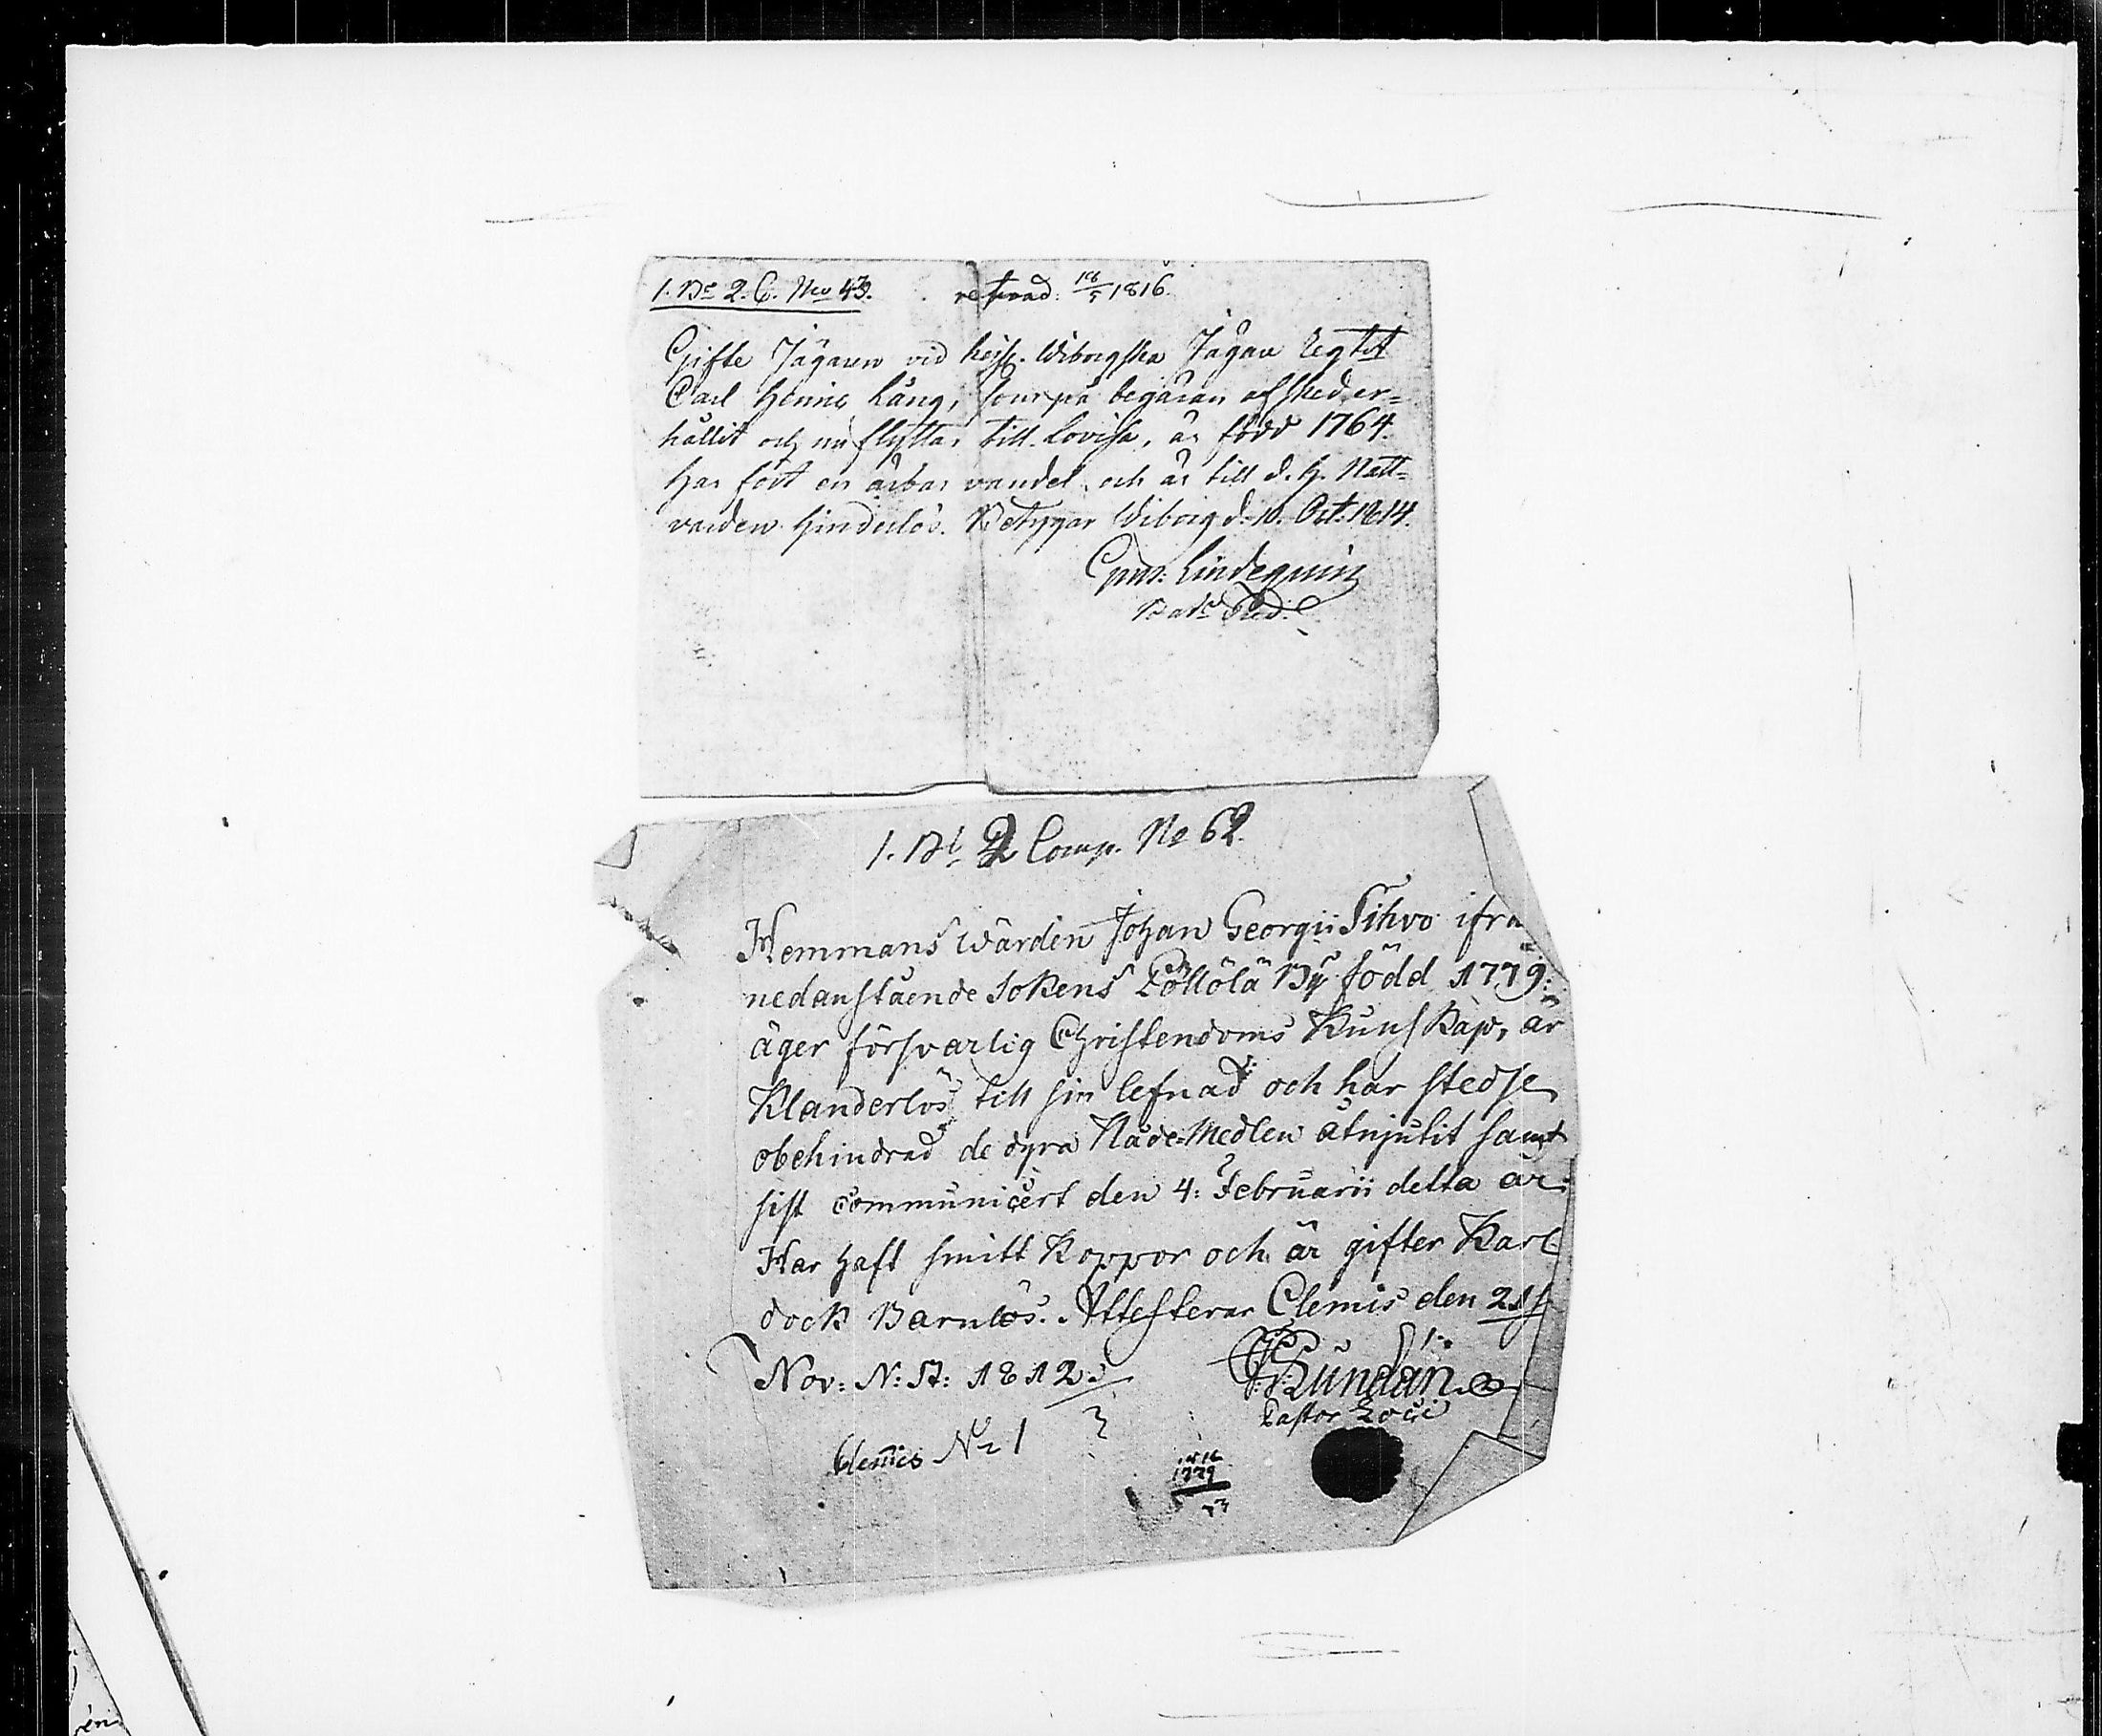 1. Bn 2. C. No 43. refrad: 18/5 1816.
Gifte Jägaren vid keis. Wiborgska Jägare Regtet
Carl Henric Lång, som på begäran afsked er=
hållit och nu flyttar till Lovisa, är född 1764.
Har fört en ärbar vandel och är till d. H. Natt=
varden hinderlös. Betygar Wiborg d. 10. Oct. 1814.
Lindequist
Bat. Pred.
1. Bt. 2 Comp. No 62.
Hemmans Wärden Johan Georgii Tihvo ifrå
nedanstående Sokens Pöllölä By född 1779:
äger försvarlig Christendoms Kunskap, är
Klanderlös till sin lefnad och har stedse
obehindrad de dyra Nåde=Medlen åtnjutit samt
sist communicert den 4: Februarii detta år:
Har haft smitt Koppor och är gifter Karl
dock Barnlös. Attesterar Clemis den 21
Nov: N: St: 1812.
Kundán
Pastor Loci
Clemis No 1
1816
1779
37